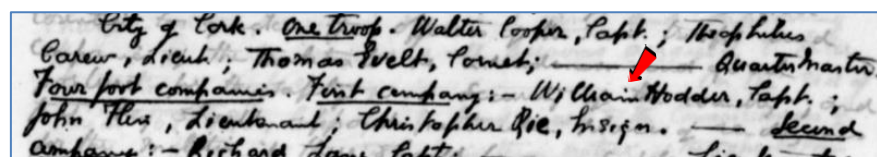 City of Cork. One troop. Walter Cooper, Capt.; Theophilus
Carew, Lieut; Thomas Evelt, Cornet; ——— Quarter Master.
Four foot companies. First company:- William Hodder, Capt.;
John , Lieutenant; Christopher , Insign. — Second
company:- Richard Capt:-